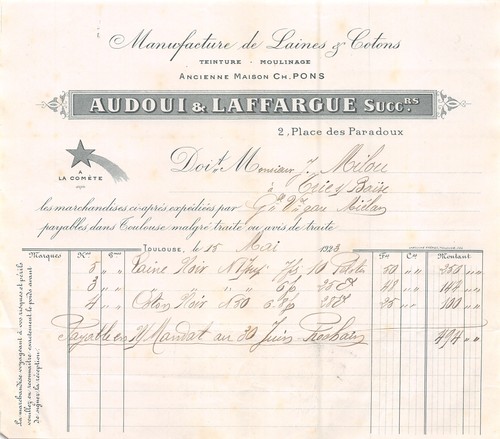 Manufacture de Laines & Cotons
TEINTURE - MOULINAGE
ANCIENNE MAISON CH. PONS
AUDOUI & LAFFARGUE SUCC.RS
2, Place des Paradoux
A
LA COMÈTE
Doit Monsieur J. Milou
à Trie s/ Baise
les marchandises ci-après expédiées par Gde Vse gare Miélan
payables dans Toulouse malgré traite ou avis de traite
TOULOUSE, le 15 Mai 1923
Marques K os G mes Fr. C es Montant
5 " " Laine Noir 7/s 10 50 " 250 "
3 " " " " 6/s 25 48 " 144 "
4 " " Coton Noir N 30 25 25 " 100 "
Payable en s/ Mandat au 30 Juin 494 "
La marchandise voyageant à vos risques et périls
veuillez en reconnaître exactement le poids avant
de signer la réception.